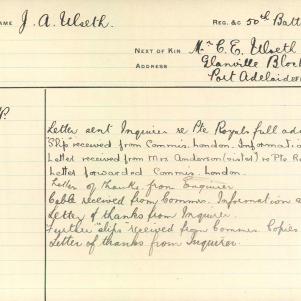 NAME J. A. Ulseth. REG. &C 50th Batt
NEXT OF KIN Mrs C. E. Ulseth
ADDRESS Glanville Block
Port Adelaide
P.
Letter sent Inquirer re Pte Royals full ad
"Slip" received from Commis. London. Informatio
Letter received from Mrs Anderson (sister) re Pte R
Letter forwarded Commis. London.
Letter of thanks from Enquirer
Cable received from Commis. Information
Letter of thanks from Inquirer.
Further "slips received from Commis. Copies
Letter of thanks from Inquirer.